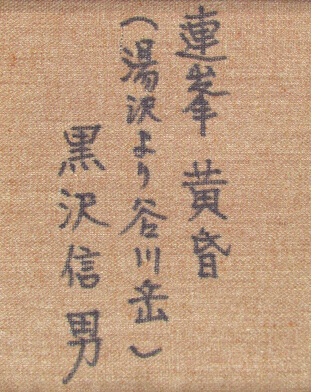 連峯 黄昏
(湯沢より谷川岳)
黒沢信男